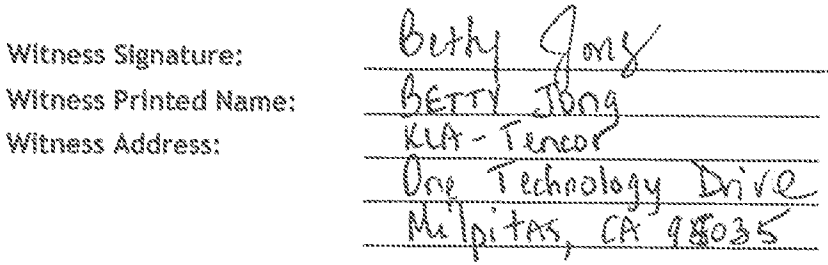 Witness Signature: Betty Jong
Witness Printed Name: BETTY Jong
Witness Address: KLA-Tencor
One Technology Drive
Milpitas, CA 95035